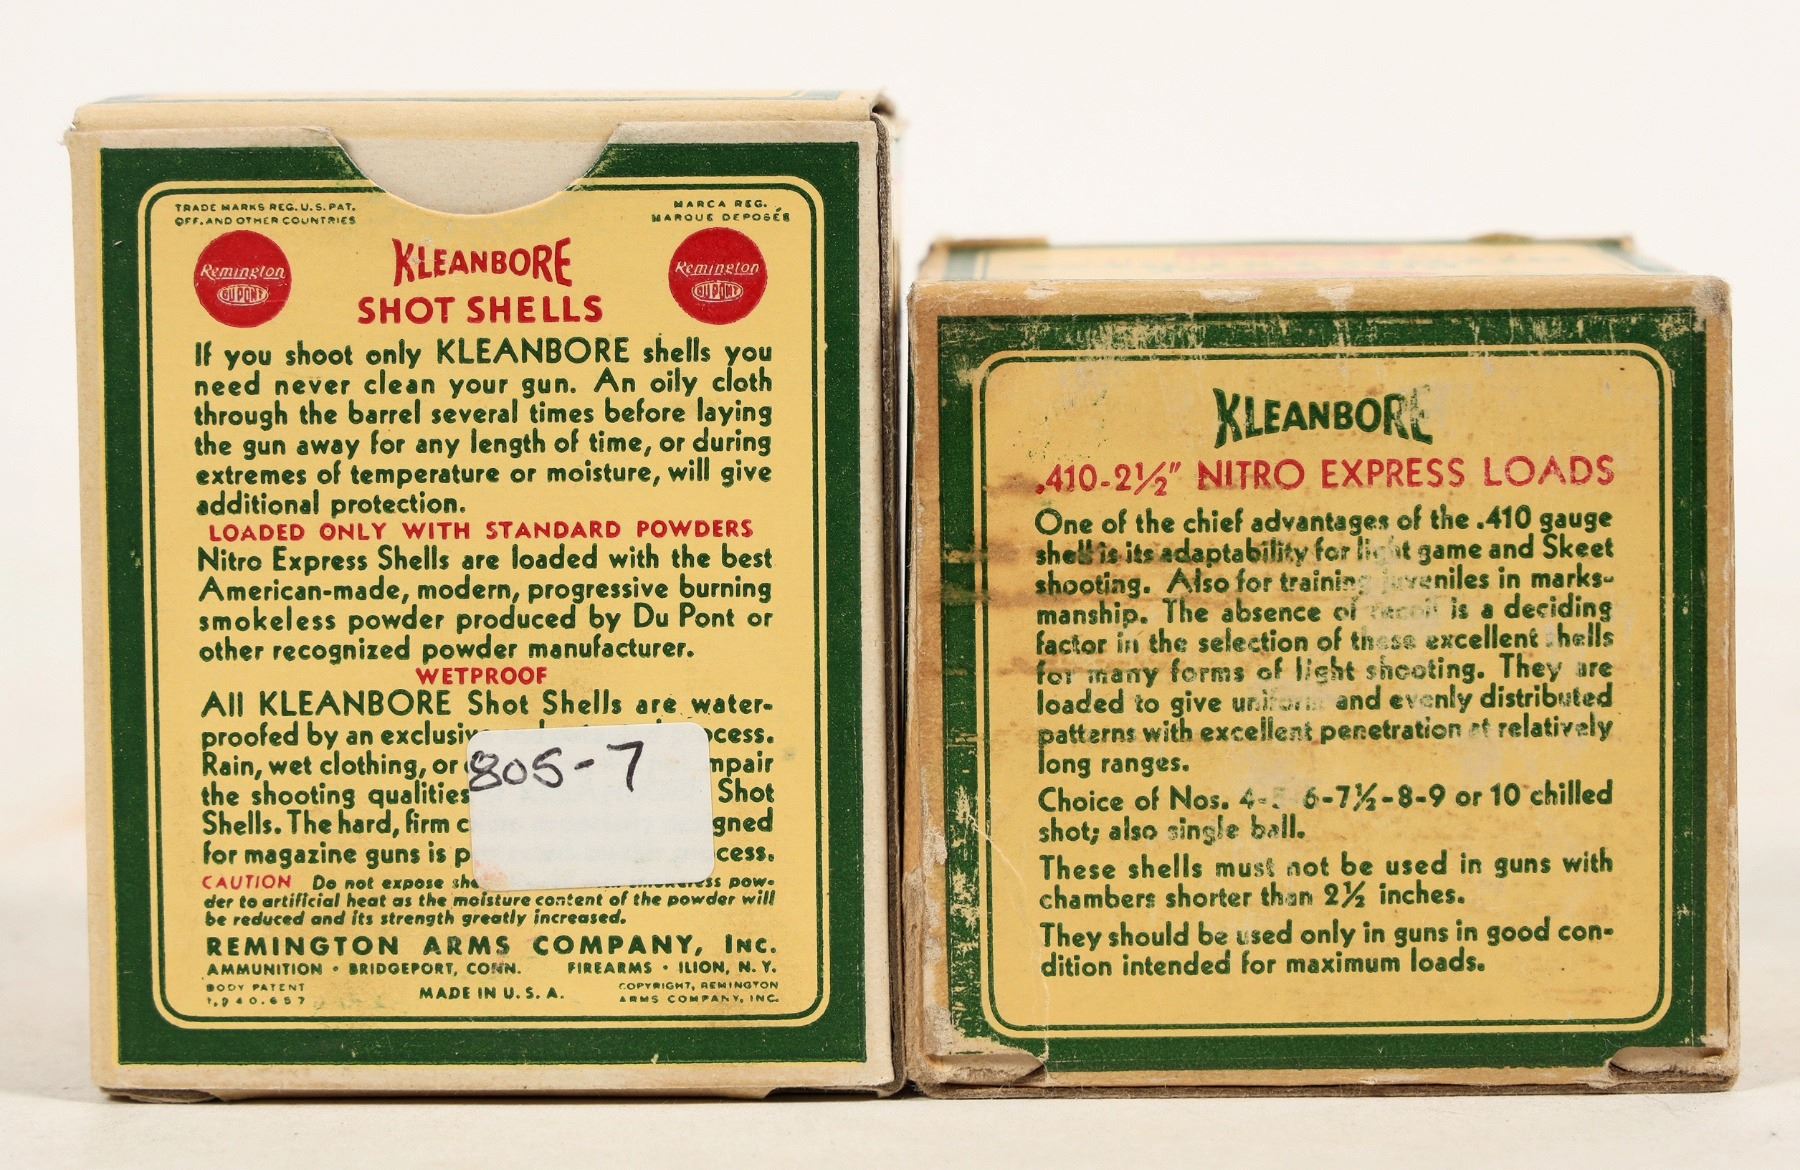 TRADE MARKS REG. U.S. PAT.
OFF. AND OTHER COUNTRIES
MARCA REG.
MARQUE DEPOSÉE
Remington
DU PONT
KLEANBORE
SHOT SHELLS
Remington
DU PONT
If you shoot only KLEANBORE shells you
need never clean your gun. An oily cloth
through the barrel several times before laying
the gun away for any length of time, or during
extremes of temperature or moisture, will give
additional protection.
LOADED ONLY WITH STANDARD POWDERS
Nitro Express Shells are loaded with the best
American-made, modern, progressive burning
smokeless powder produced by Du Pont or
other recognized powder manufacturer.
WETPROOF
All KLEANBORE Shot Shells are water-
proofed by an
Rain, wet clothing, or
the shooting qualities Shot
Shells. The hard, firm
for magazine guns is
805-7
CAUTION Do not expose pow-
der to artificial heat as the moisture content of the powder will
be reduced and its strength greatly increased.
REMINGTON ARMS COMPANY, INC.
AMMUNITION • BRIDGEPORT, CONN. FIREARMS • ILION, N. Y.
BODY PATENT
1,940,657
MADE IN U. S. A.
COPYRIGHT, REMINGTON
ARMS COMPANY, INC.
KLEANBORE
.410-2½" NITRO EXPRESS LOADS
One of the chief advantages of the .410 gauge
shell is its adaptability for light game and Skeet
shooting. Also for training juveniles in marks-
manship. The absence of recoil is a deciding
factor in the selection of these excellent shells
for many forms of light shooting. They are
loaded to give uniform and evenly distributed
patterns with excellent penetration at relatively
long ranges.
Choice of Nos. 4-5-6-7½-8-9 or 10 chilled
shot; also single ball.
These shells must not be used in guns with
chambers shorter than 2½ inches.
They should be used only in guns in good con-
dition intended for maximum loads.